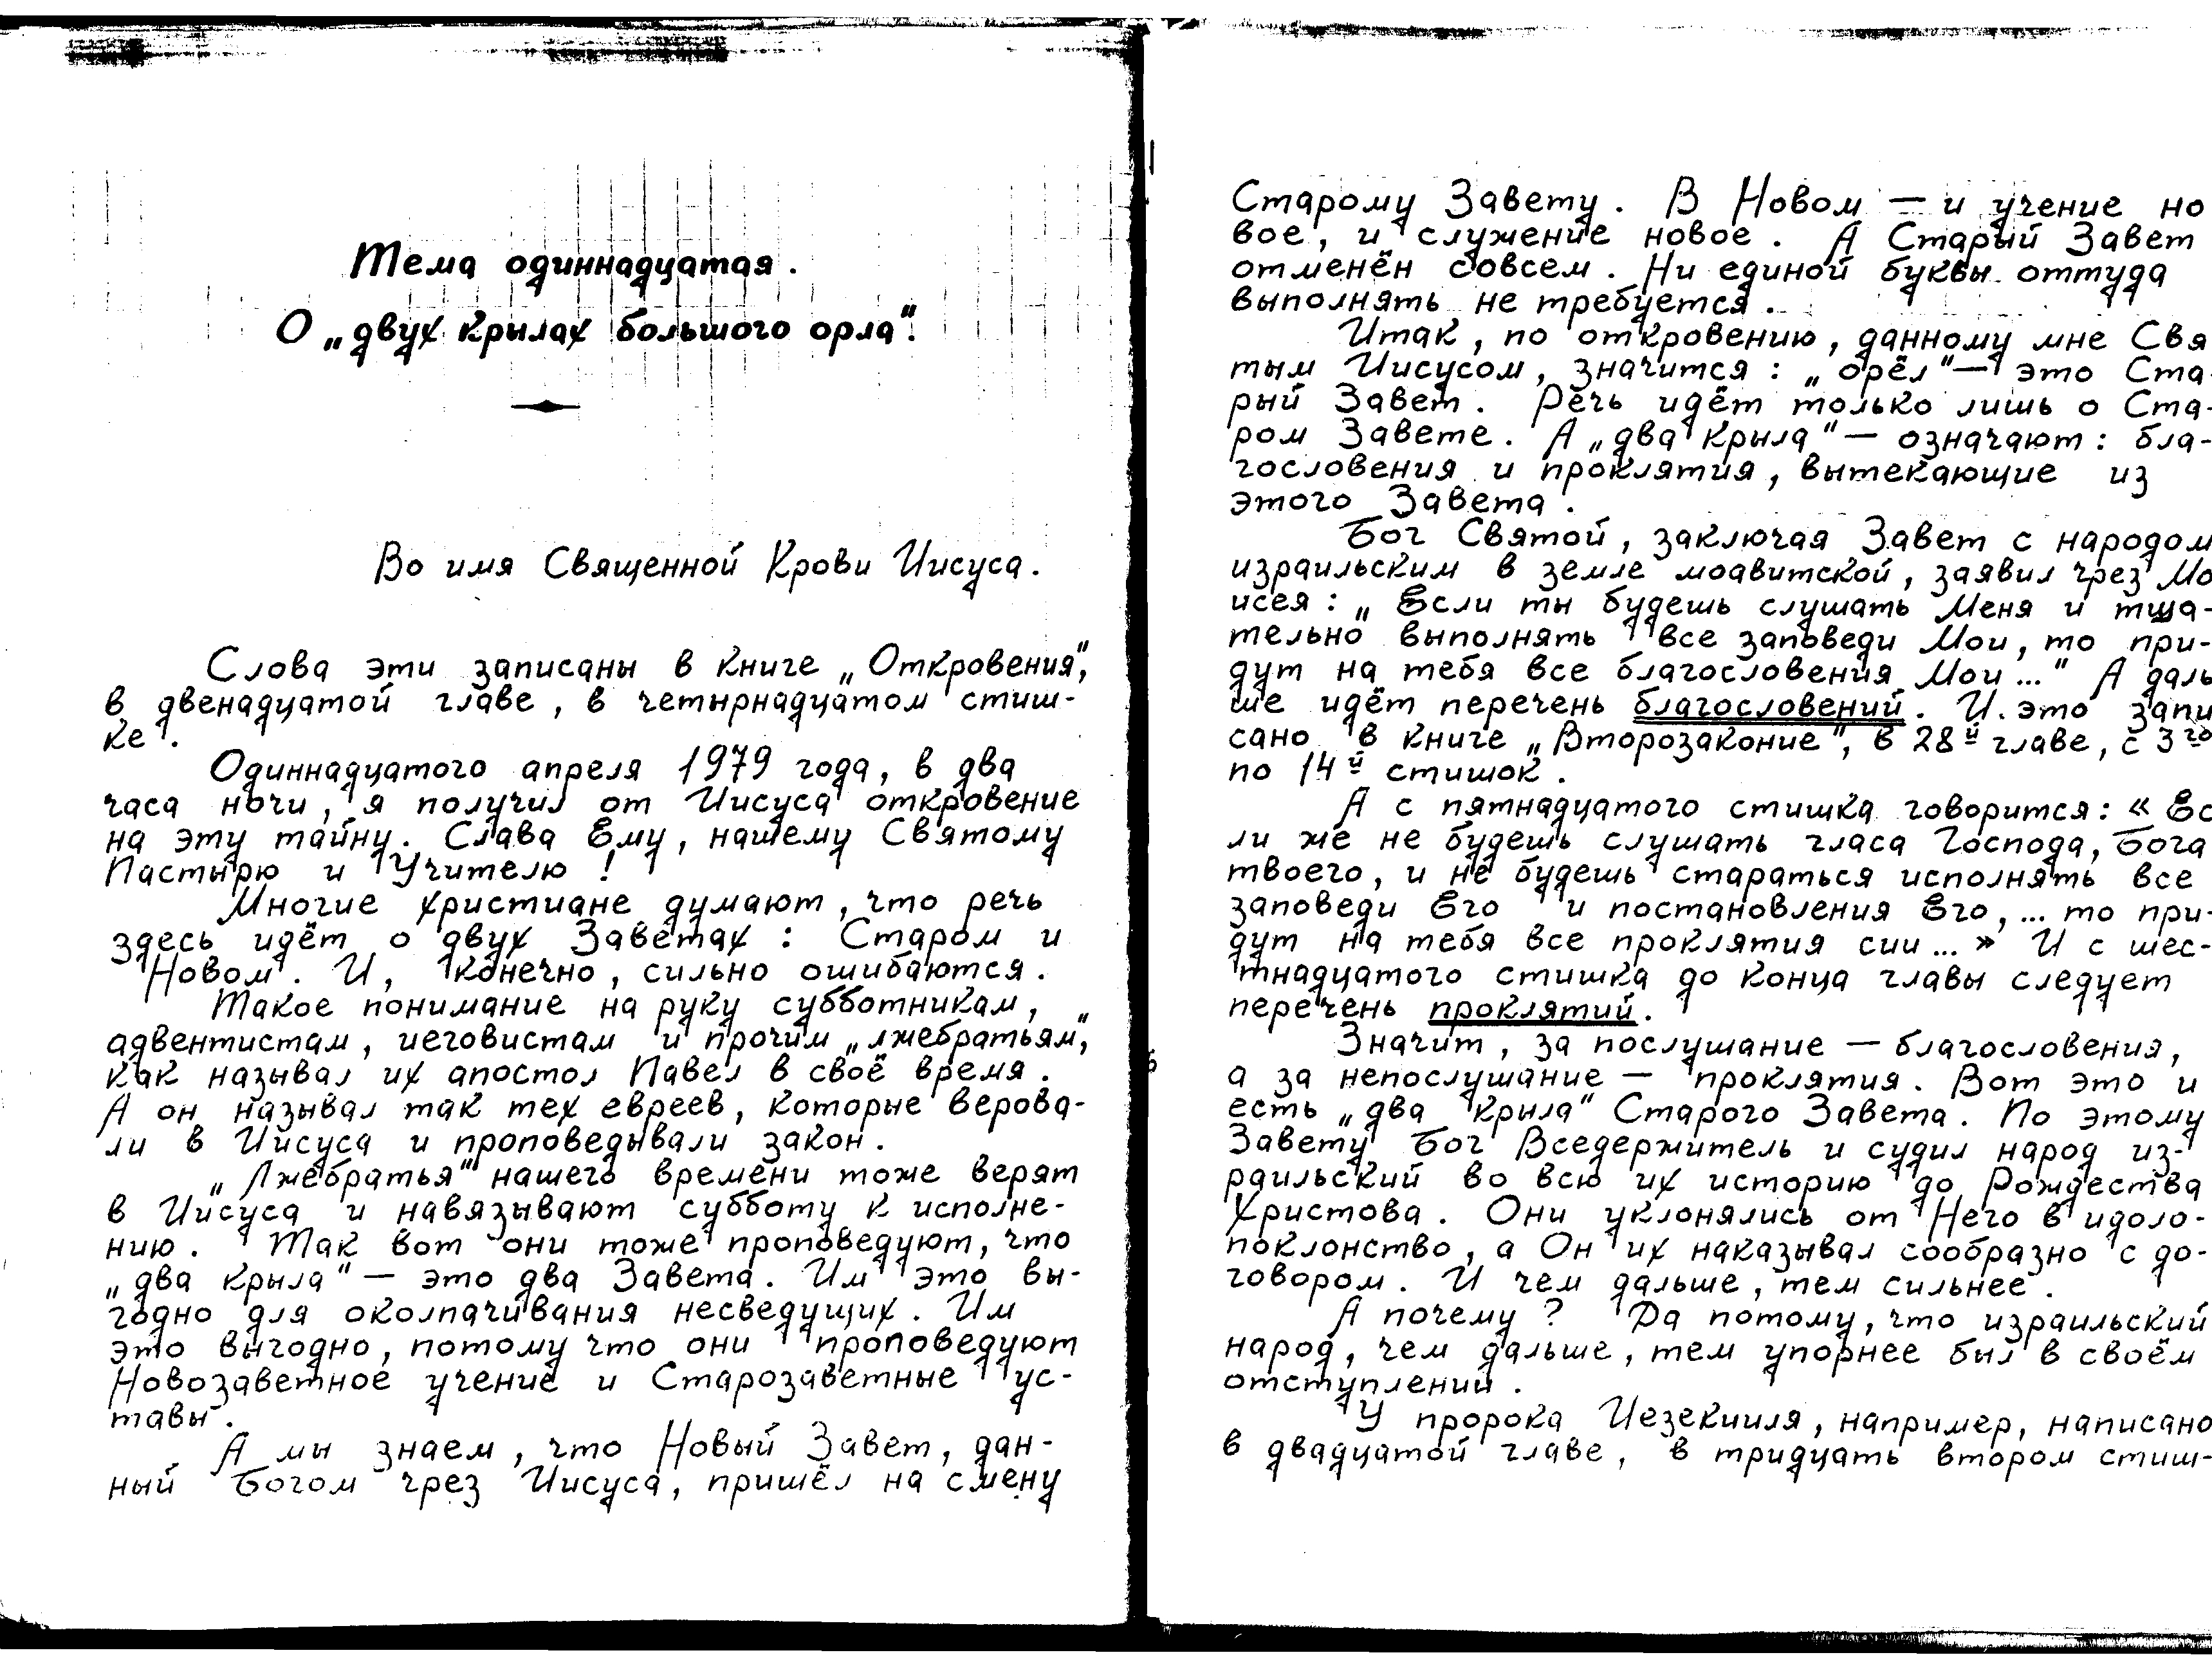 Тема одиннадцатая.
О „двух крыльях большого орла".
Во имя Священной Крови Иисуса.
Слова эти записаны в книге „Откровения",
в двенадцатой главе, в четырнадцатом стиш-
ке.
Одиннадцатого апреля 1979 года, в два
часа ночи, я получил от Иисуса откровение
на эту тайну. Слава Ему, нашему Святому
Пастырю и Учителю!
Многие христиане думают, что речь
здесь идёт о двух Заветах: Старом и
Новом. И, конечно, сильно ошибаются.
Такое понимание на руку субботникам,
адвентистам, иеговистам и прочим „лжебратьям",
как называл их апостол Павел в своё время.
А он называл так тех евреев, которые верова-
ли в Иисуса и проповедывали закон.
„Лжебратья" нашего времени тоже верят
в Иисуса и навязывают субботу к исполне-
нию. Так вот они тоже проповедуют, что
„два крыла" — это два Завета. Им это вы-
годно для околпачивания несведущих. Им
это выгодно, потому что они проповедуют
Новозаветное учение и Старозаветные ус-
тавы.
А мы знаем, что Новый Завет, дан-
ный Богом чрез Иисуса, пришёл на смену
Старому Завету. В Новом — и учение но
вое, и служение новое. А Старый Завет
отменён совсем. Ни единой буквы оттуда
выполнять не требуется.
Итак, по откровению, данному мне Свя
тым Иисусом, значится: „орёл" — это Ста-
рый Завет. Речь идёт только лишь о Ста-
ром Завете. А „два крыла" — означают: бла-
гословения и проклятия, вытекающие из
этого Завета.
Бог Святой, заключая Завет с народом
израильским в земле моавитской, заявил чрез Мо
исея: „Если ты будешь слушать Меня и тща-
тельно выполнять все заповеди Мои, то при-
дут на тебя все благословения Мои..." А даль
ше идёт перечень благословений. И это запи
сано в книге „Второзаконие", в 28й главе, с 3го
по 14й стишок.
А с пятнадцатого стишка говорится: « Ес
ли же не будешь слушать гласа Господа, Бога
твоего, и не будешь стараться исполнять все
заповеди Его и постановления Его, ... то при-
дут на тебя все проклятия сии... » И с шес-
тнадцатого стишка до конца главы следует
перечень проклятий.
Значит, за послушание — благословения,
а за непослушание — проклятия. Вот это и
есть „два крыла" Старого Завета. По этому
Завету Бог Вседержитель и судил народ из-
раильский во всю их историю до Рождества
Христова. Они уклонялись от Него в идоло-
поклонство, а Он их наказывал сообразно с до-
говором. И чем дальше, тем сильнее.
А почему? Да потому, что израильский
народ, чем дальше, тем упорнее был в своём
отступлении.
У пророка Иезекииля, например, написано
в двадцатой главе, в тридцать втором стиш-